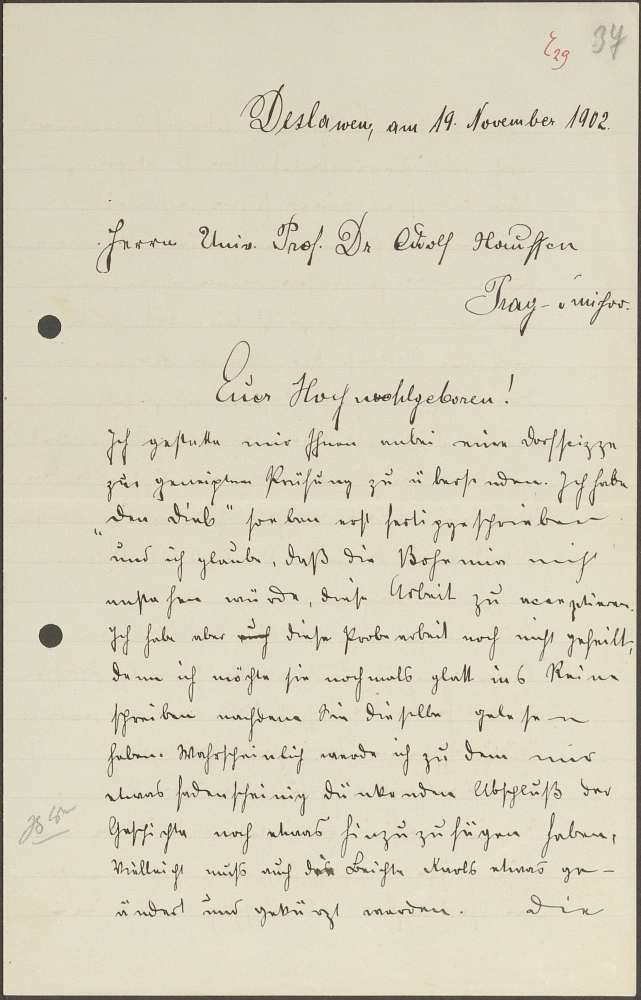 E29 37
Deslawen, am 19. November 1902.
Herrn Univ. Prof. Dr Adolf Hauffen
Prag-
Euer Hochwohlgeboren!
Ich gestatte mir Ihnen anbei eine Dorfskizze
zur geneigten Prüfung zu übersenden. Ich habe
"den Dieb" soeben erst fertiggeschrieben
und ich glaube, daß die Bohemia nicht
anstehen würde, diese Arbeit zu acceptieren.
Ich habe aber auch diese Probearbeit noch nicht gefeilt,
denn ich möchte sie nochmals glatt ins Reine
schreiben nachdem Sie dieselbe gelesen
haben. Wahrscheinlich werde ich zu dem mir
etwas fadenscheinig dünkenden Abschluß der
Geschichte noch etwas hinzuzufügen haben,
Vielleicht muß auch die Beichte Karls etwas ge-
ändert und gekürzt werden. Die